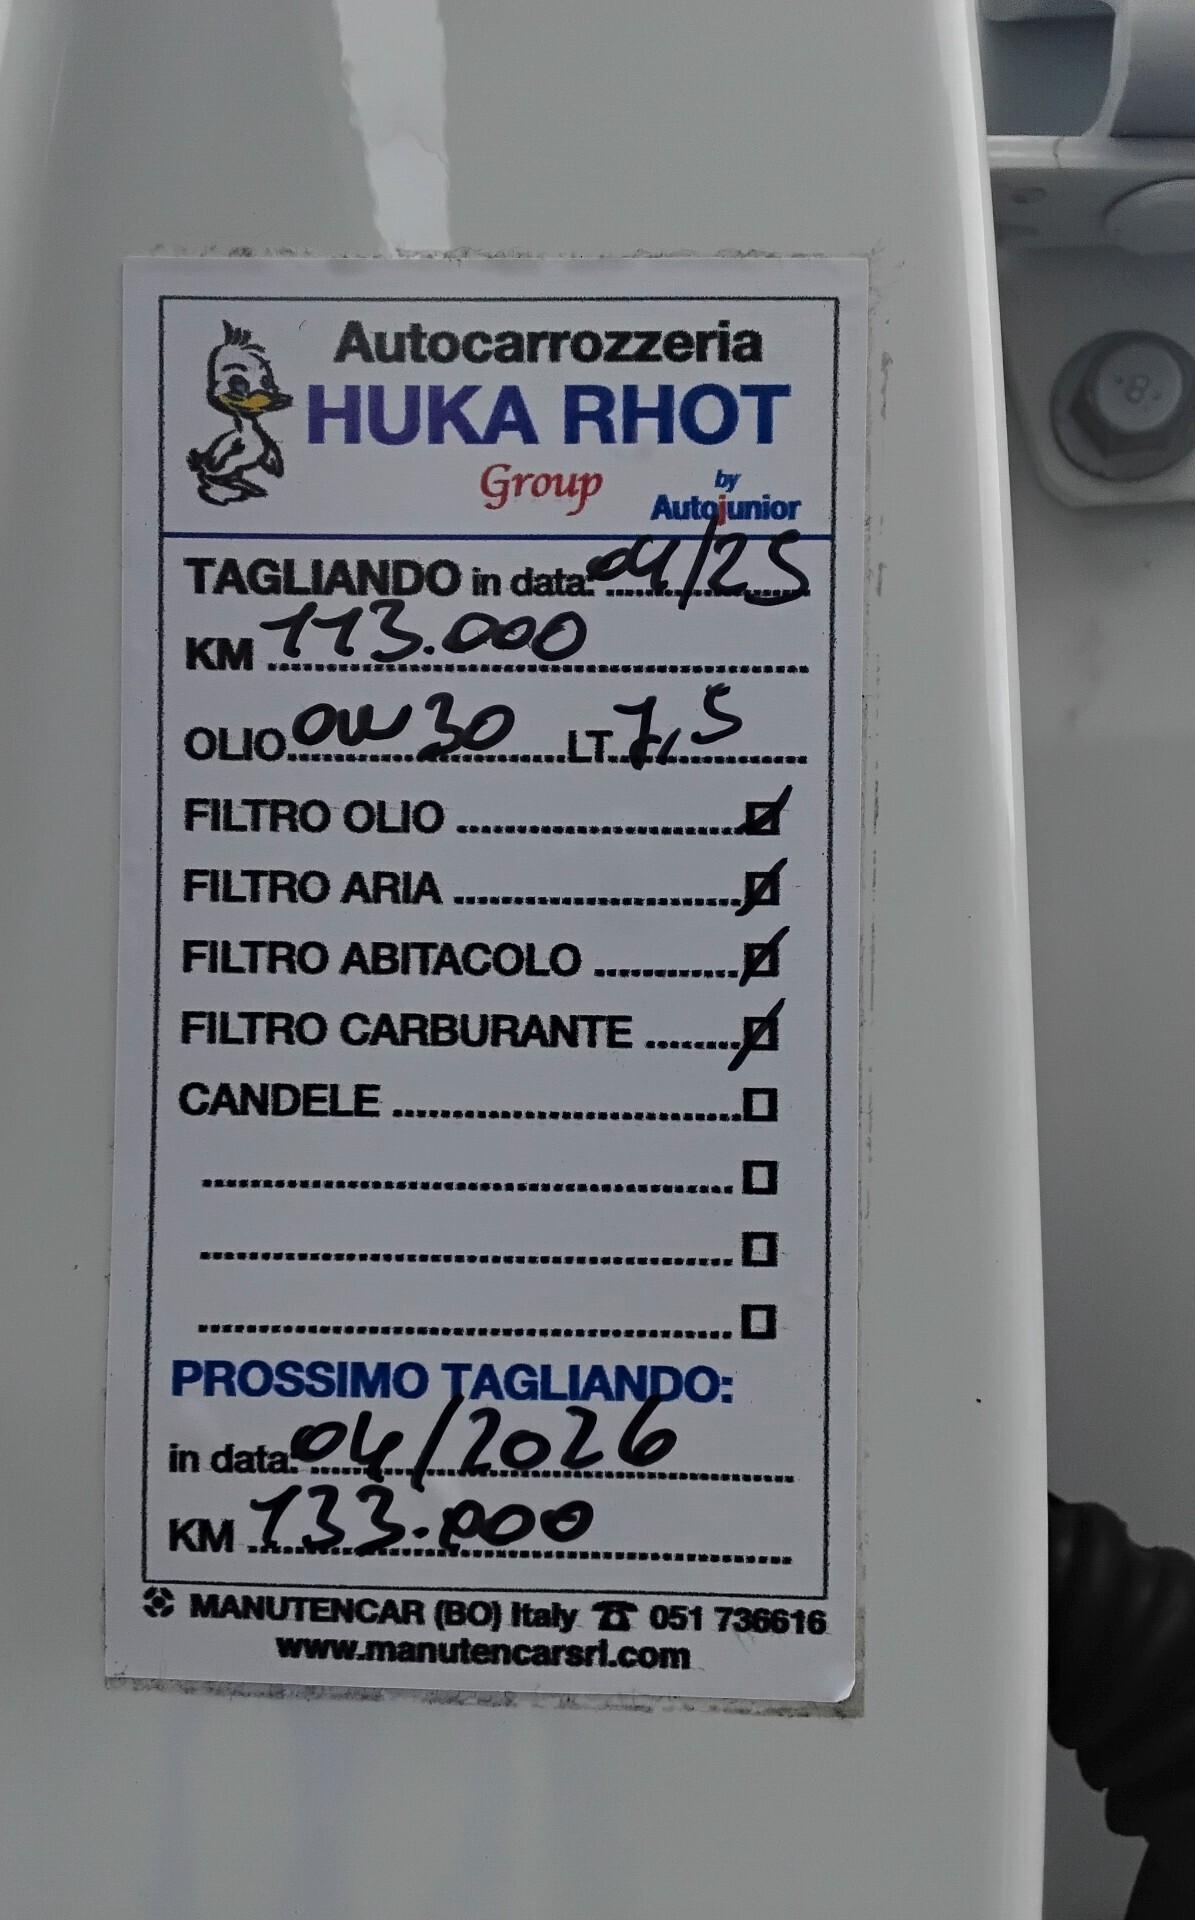 Autocarrozzeria
HUKA RHOT
Group
by
Autojunior
TAGLIANDO in data: 04/25
KM 113.000
OLIO 0W30 LT 7,5
FILTRO OLIO
FILTRO ARIA
FILTRO ABITACOLO
FILTRO CARBURANTE
CANDELE
PROSSIMO TAGLIANDO:
in data: 04/2026
KM 133.000
MANUTENCAR (BO) Italy ☎ 051 736616
www.manutencarsrl.com
8